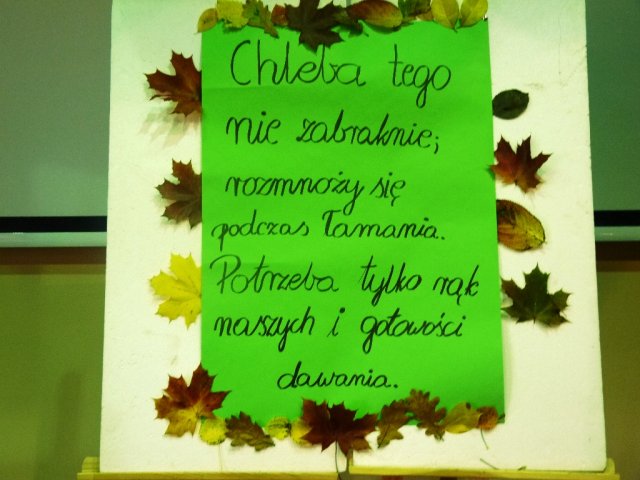 Chleba tego
nie zabraknie;
rozmnoży się
podczas łamania.
Potrzeba tylko rąk
naszych i gotowości
dawania.